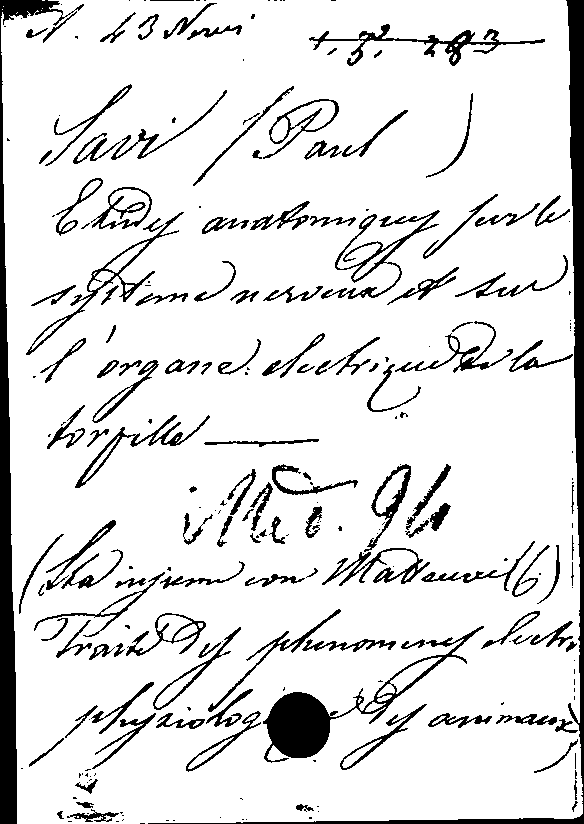 N. 43 Nervi
1. 5². 283
Savi (Paul)
Etudes anatomiques sur le
système nerveux et sur
l'organe electrique de la
torpille —
Med. 94
(Sta insieme con Matteucci (C)
Traité des phenomenes electro
physiologi des animaux)